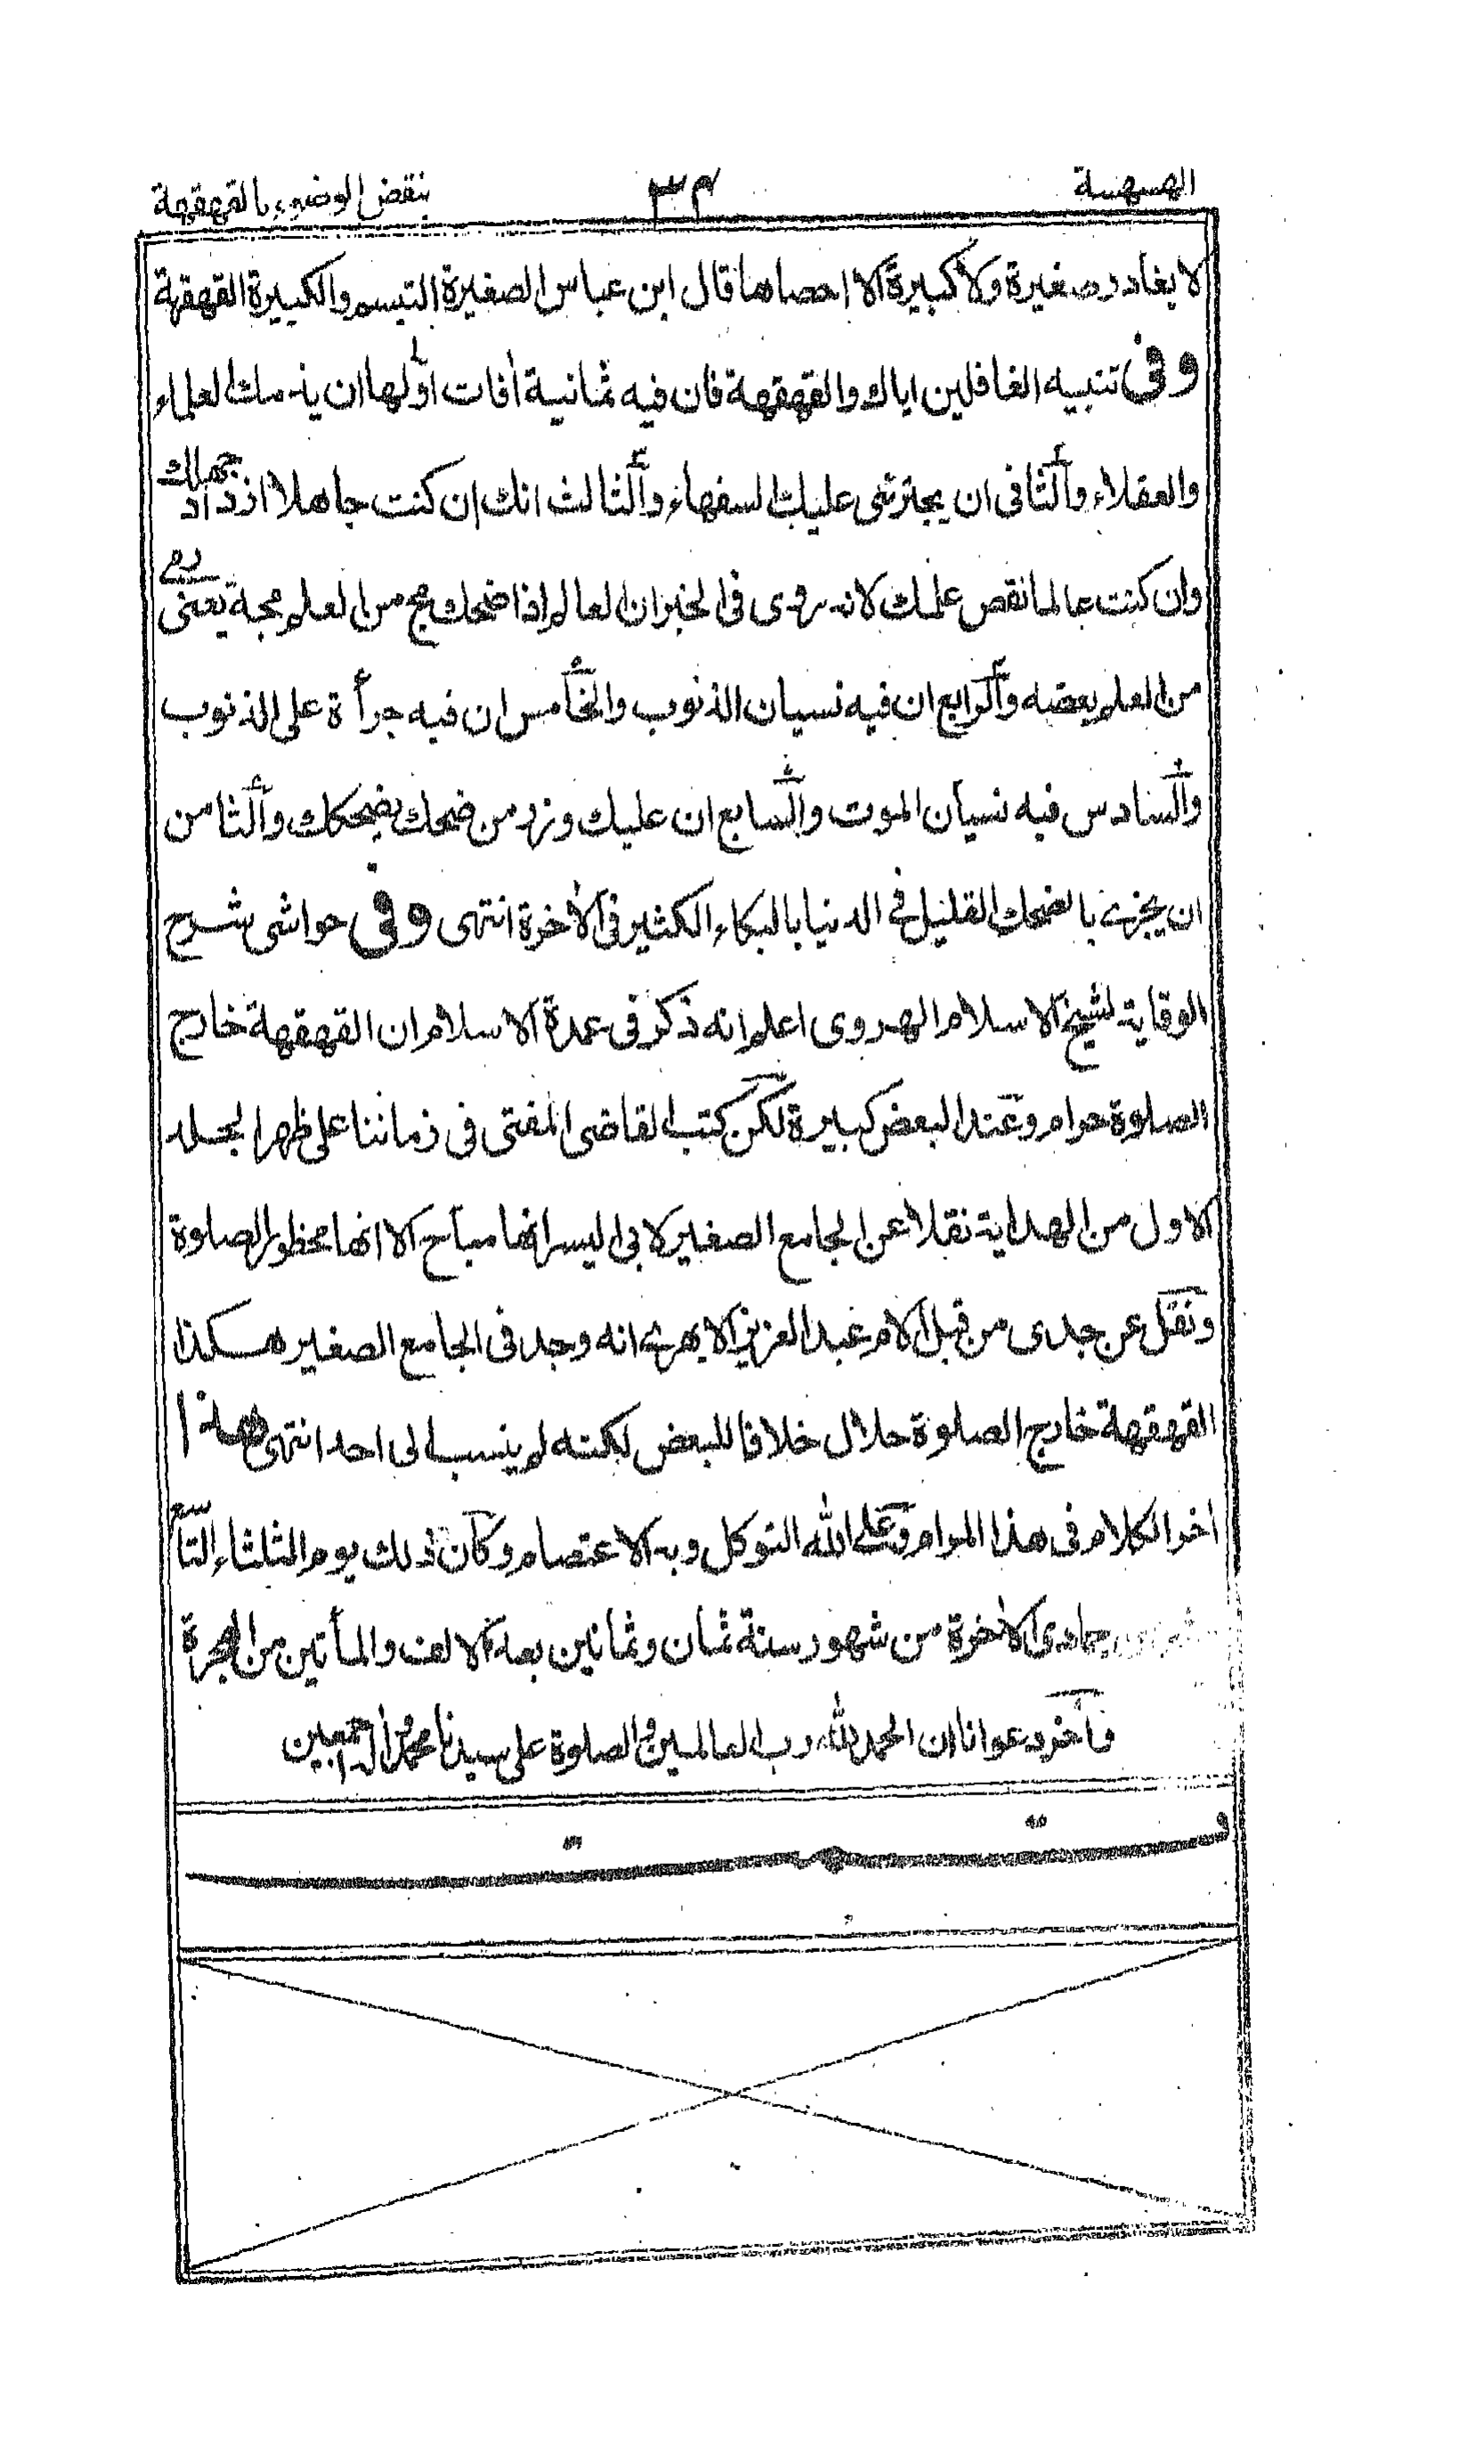 الهسهسة ٣٤ بنقض الوضوء بالقهقهة
لا يغادر صغيرة ولا كبيرة الا احصاها قال ابن عباس الصغيرة التبسم والكبيرة القهقهة
وفى تنبيه الغافلين اياك والقهقهة فان فيه ثمانية أفات اولها ان يذمك العلماء
والعقلاء والثانى ان يجترئى عليك السفهاء والثالث انك ان كنت جاهلا ازداد جهلك
وان كنت عالما نقص علمك لانه روى فى الخبر ان العالم اذا ضحك مج من العلم مجة يعنى رمى
من العلم بعضه والرابع ان فيه نسيان الذنوب والخامس ان فيه جرأة على الذنوب
والسادس فيه نسيان الموت والسابع ان عليك وزر من ضحك بضحكك والثامن
ان يجزى بالضحك القليل فى الدنيا بالبكاء الكثير فى الأخرة انتهى وفى حواشى شرح
الوقاية لشيخ الاسلام الهروى اعلم انه ذكر فى عمدة الاسلام ان القهقهة خارج
الصلوة حرام وعند البعض كبيرة لكن كتب القاضى المفتى فى زماننا على ظهر الجلد
الاول من الهداية نقلا عن الجامع الصغير لابى اليسر انها مباح الا انها محظور الصلوة
ونقل عن جدى من قبل الام عبد العزيز الابهرى انه وجد فى الجامع الصغير هكذا
القهقهة خارج الصلوة حلال خلافا للبعض لكنه لم ينسب الى احد انتهى هذا
اخر الكلام فى هذا المرام وعلى الله التوكل وبه الاعتصام وكان ذلك يوم الثلثاء التاسع
جمادى الأخرة من شهور سنة ثمان وثمانين بعد الالف والمأتين من الهجرة
وأخر دعوانا ان الحمد لله رب العالمين والصلوة على سيدنا محمد وأله اجمعين
تمت